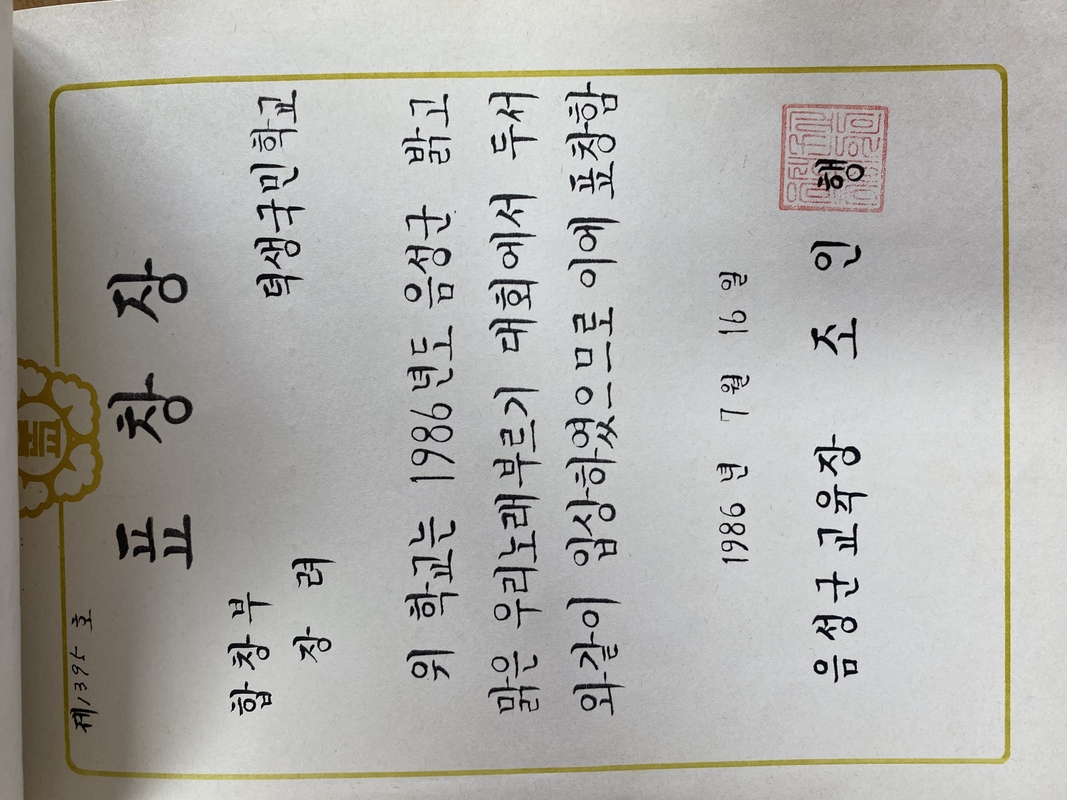 제1395호
표 창 장
합창부
장 려
덕생국민학교
위 학교는 1986년도 음성군 밝고
맑은 우리노래부르기 대회에서 두서
와같이 입상하였으므로 이에 표창함
1986년 7월 16일
음성군교육장 조 인 행